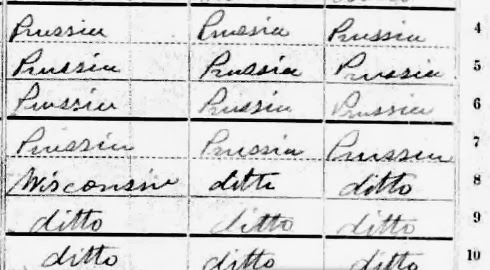 Prussia Prussia Prussia 4
Prussia Prussia Prussia 5
Prussia Prussia Prussia 6
Prussia Prussia Prussia 7
Wisconsin ditto ditto 8
ditto ditto ditto 9
ditto ditto ditto 10